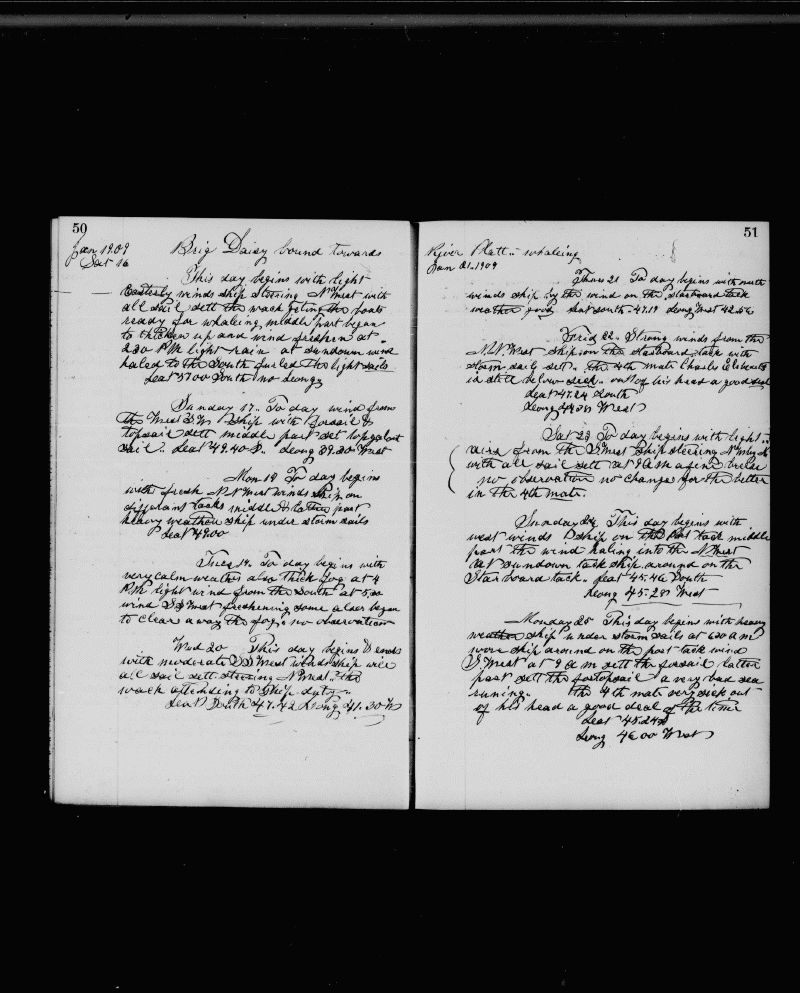 50
Jan 1909
Sat 16
Brig Daisy bound towards
This day begins with light
Easterly winds ship steering N West with
all sail sett the wach geting the boats
ready for whaleing middle part began
to thicken up and wind freshen at
2.30 P M light rain at sundown wind
haled to the South furled the light sails
Leat 5700 South no Longg
Sunday 17. To day wind from
the West S W Ship with forsail &
topsail sett middle part set topgalant
sail. Leat 49.40 S. Leong 39.20 West
Mon 18 To day begins
with fresh N N West winds ship on
tacks middle & latter part
heavy weather ship under storm sails
Leat 4900
Tues 19. To day begins with
very calm weather also thick fog at 4
P M light wind from the South at 5.30
wind S S West freshening some alser began
to clear away the fog. no observation
Wed 20 This day begins & ends
with moderate S S West winds ship with
all sail sett steering N West. the
wach attending to Ship duty
Leat South 47.42 Leong 41.30 W
51
River Platt whaleing
Jan 21. 1909
Thurs 21 To day begins with north
winds ship by the wind on the starboard tack
weather good Leat South 47.19 Leong West 42.56
Frid 22. Strong winds from the
N.N. West ship on the starboard tack with
storm sails set. the 4th mate Charles
is still below sick. out of his head a good deal
Leat 47.24 South
Leong West
Sat 23 To day begins with light
airs from the S West ship steering N W by N
with all sail sett at 9 A M a fine breese
no observation no change for the better
in the 4th mate.
Sunday 24 This day begins with
west winds Ship on the Port tack middle
part the wind haling into the N West
at sundown tack ship around on the
Starboard tack. Leat 45.46 South
Leong 45.28 West
Monday 25 This day begins with heavy
weather ship under storm sails at 6.30 a m
wore ship around on the port tack wind
S West at 9 a m sett the forsail latter
part sett the fortopsail a very bad sea
runing. the 4th mate very sick out
of his head a good deal of the time
Leat 45.24 S
Leong 46 00 West